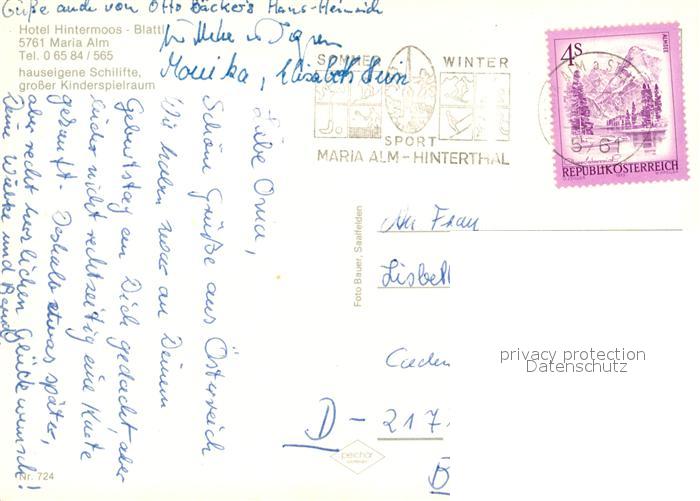 Grüße auch von Otto Bäckers Hans-Heinrich
Monika, Elisabeth
Hotel Hintermoos - Blattl
5761 Maria Alm
Tel. 0 65 84 / 565
hauseigene Schilifte,
großer Kinderspielraum
Liebe Oma,
Schöne Grüße aus Österreich
Wir haben zwar an Deinem
Geburtstag an Dich gedacht, aber
leider nicht rechtzeitig eine Karte
gesandt. Deshalb etwas später,
aber recht herzlichen Glückwunsch!
Deine Wiebke und
Nr. 724
SOMMER WINTER
SPORT
MARIA ALM - HINTERTHAL
4S
ALMSEE
5761
REPUBLIK ÖSTERREICH
Foto Bauer, Saalfelden
An Frau
Lisbet
D - 217
privacy protection
Datenschutz